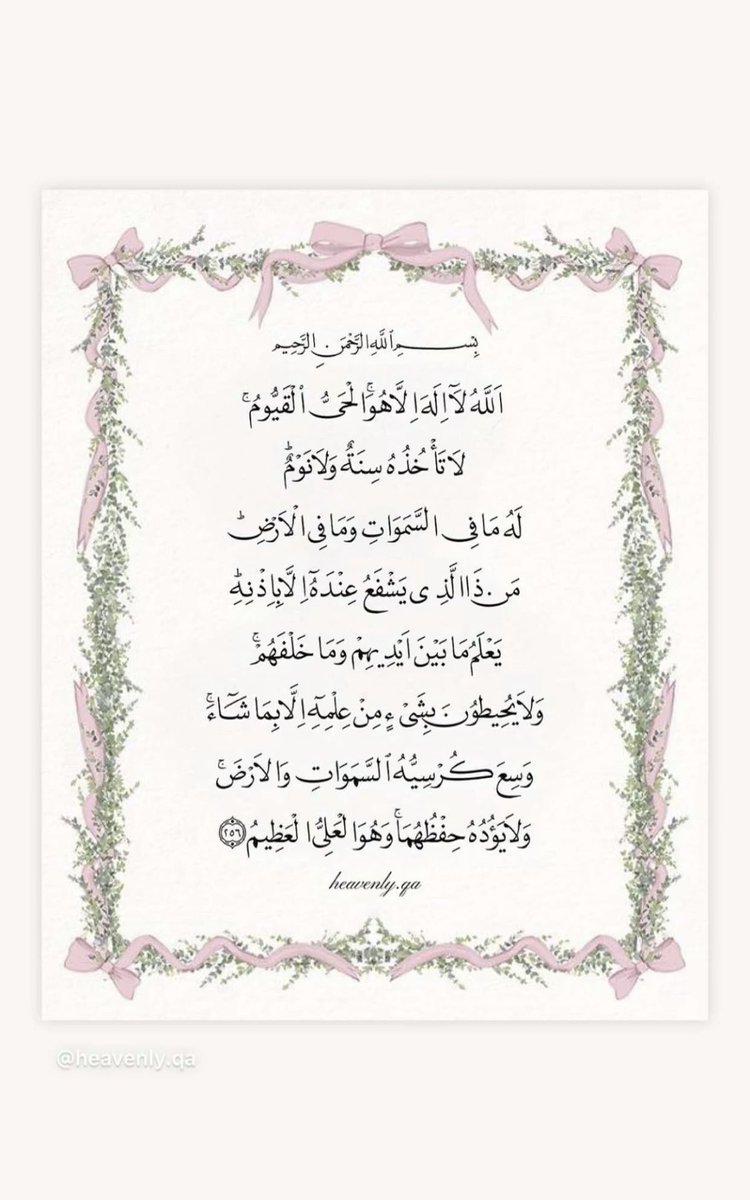 بِسْمِ اللَّهِ الرَّحْمَنِ الرَّحِيمِ
اَللَّهُ لَآ اِلَهَ اِلَّا هُوَۚ اَلْحَىُّ ٱلْقَيُّومُۚ
لَا تَأْخُذُهُ سِنَةٌ وَلَا نَوْمٌؕ
لَهُ مَا فِى السَّمَوَاتِ وَمَا فِى الْاَرْضِؕ
مَن ذَا الَّذِى يَشْفَعُ عِنْدَهُٓ اِلَّا بِاِذْنِهِؕ
يَعْلَمُ مَا بَيْنَ اَيْدِيهِمْ وَمَا خَلْفَهُمْۚ
وَلَا يُحِيطُونَ بِشَىْءٍ مِنْ عِلْمِهِٓ اِلَّا بِمَا شَآءَۚ
وَسِعَ كُرْسِيُّهُ ٱلسَّمَوَاتِ وَالْاَرْضَۚ
وَلَا يَؤُدُهُ حِفْظُهُمَاۚ وَهُوَ الْعَلِىُّ الْعَظِيمُ ٢٥٦
heavenly.qa
@heavenly.qa